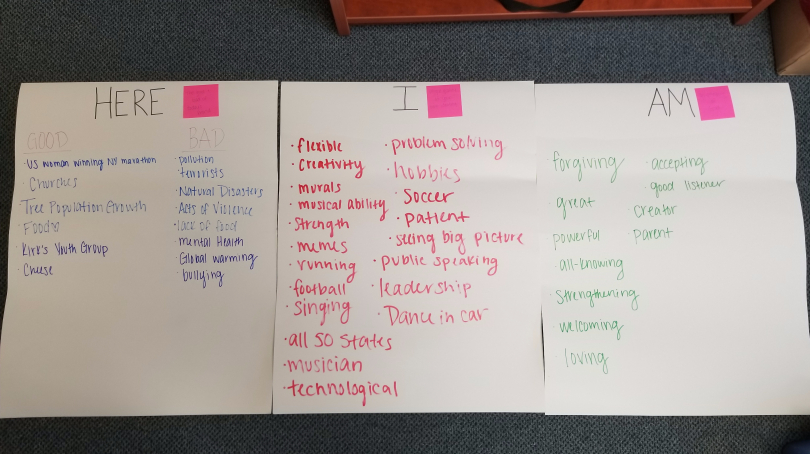 HERE
GOOD
· US woman winning NY marathon
· Churches
Tree Population Growth
· Foods
· Kirk's Youth Group
· Cheese
BAD
· pollution
· terrorists
· Natural Disasters
· Acts of Violence
· lack of food
· mental Health
· Global warming
· bullying
I
· flexible
· Creativity
· murals
· musical ability
· Strength
· memes
· running
· football
· singing
· all 50 States
· musician
· technological
· problem solving
· hobbies
· Soccer
· patient
· seeing big picture
· public speaking
· leadership
· Dance in car
AM
· forgiving
· great
powerful
· all-knowing
· Strengthening
· welcoming
· loving
· accepting
· good listener
Creator
parent